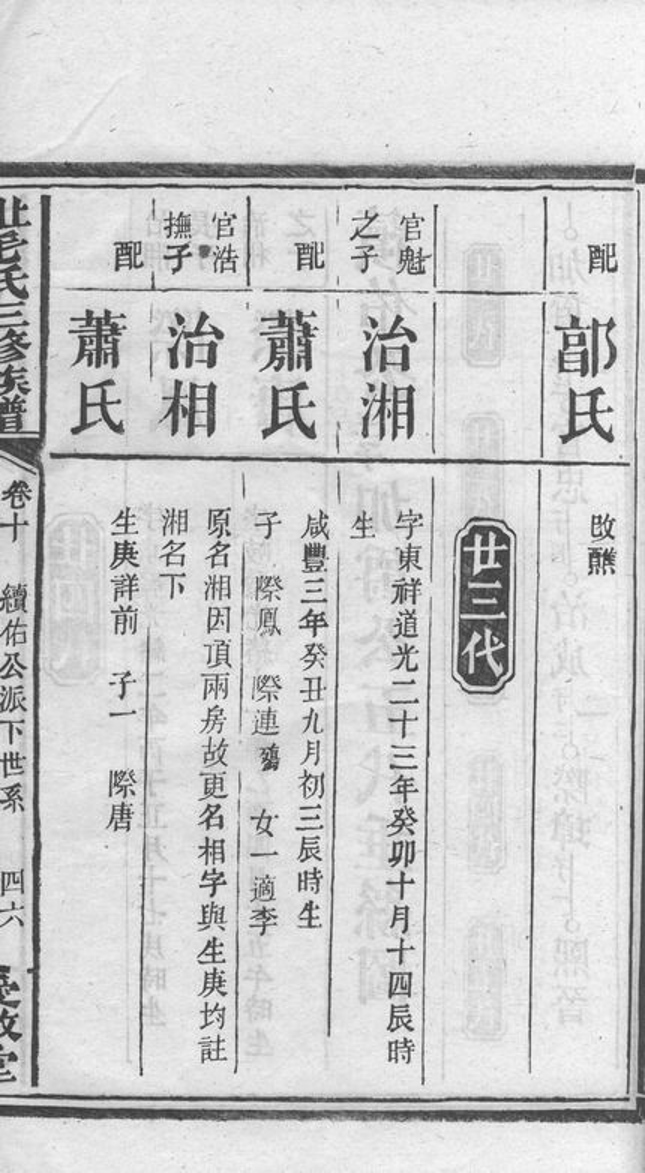 配
郭氏
改醮
廿三代
官魁
之子
治湘
字東祥道光二十三年癸卯十月十四辰時
生
配
蕭氏
咸豐三年癸丑九月初三辰時生
子 際鳳 際連 殤 女一適李
官浩
撫子
治相
原名湘因頂兩房故更名相字與生庚均註
湘名下
配
蕭氏
生庚詳前 子一 際唐
毛氏三修族譜
卷十 續佑公派下世系 四六